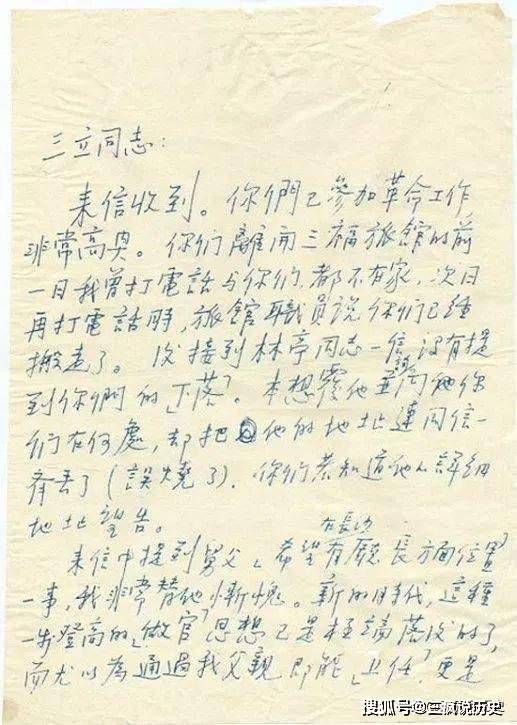 三立同志:
来信收到。你們已參加革命工作
非常高興。你们離開三福旅館的前
一日我曾打電話与你们,都不在家,次日
再打電話時,旅館職員說你们已經
搬走了。後接到林亭同志一信,没有提
到你們的「下落」。本想覆他並詢問他你
们在何處,却把他的地址連同信一
齊丟了(誤燒了)。你们若知道他的詳細
地址望告。
在長沙
來信中提到舅父「希望有廳長方面位置」
一事,我非常替他慚愧。新的時代,這種
一步登高的「做官」思想已是極端落後的了,
而尤以為通過我父親即能「上任」,更是
搜狐号@三疯说历史